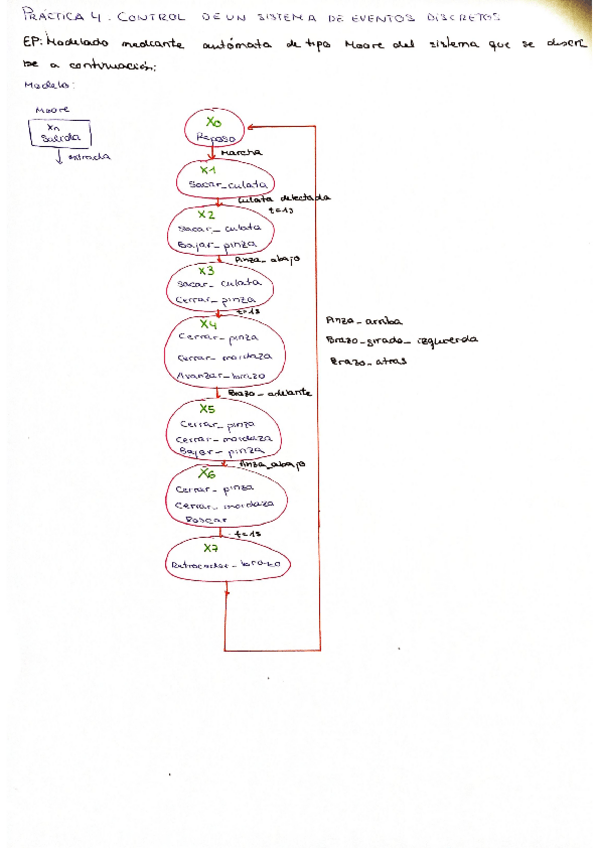 PRÁCTICA 4. CONTROL DE UN SISTEMA DE EVENTOS DISCRETOS
EP: Modelado mediante autómata de tipo Moore del sistema que se descri
be a continuación:
Modelo:
Moore
Xn
Salida
entrada
X0
Reposo
Marcha
X1
Sacar_culata
Culata detectada
t=1s
X2
Sacar_culata
Bajar_pinza
Pinza_abajo
X3
Sacar_culata
Cerrar_pinza
t=1s
X4
Cerrar_pinza
Cerrar_mordaza
Avanzar_brazo
Brazo_adelante
X5
Cerrar_pinza
Cerrar_mordaza
Bajar_pinza
Pinza_abajo
X6
Cerrar_pinza
Cerrar_mordaza
Roscar
t=1s
X7
Retroceder_brazo
Pinza_arriba
Brazo_girado_izquierda
Brazo_atras